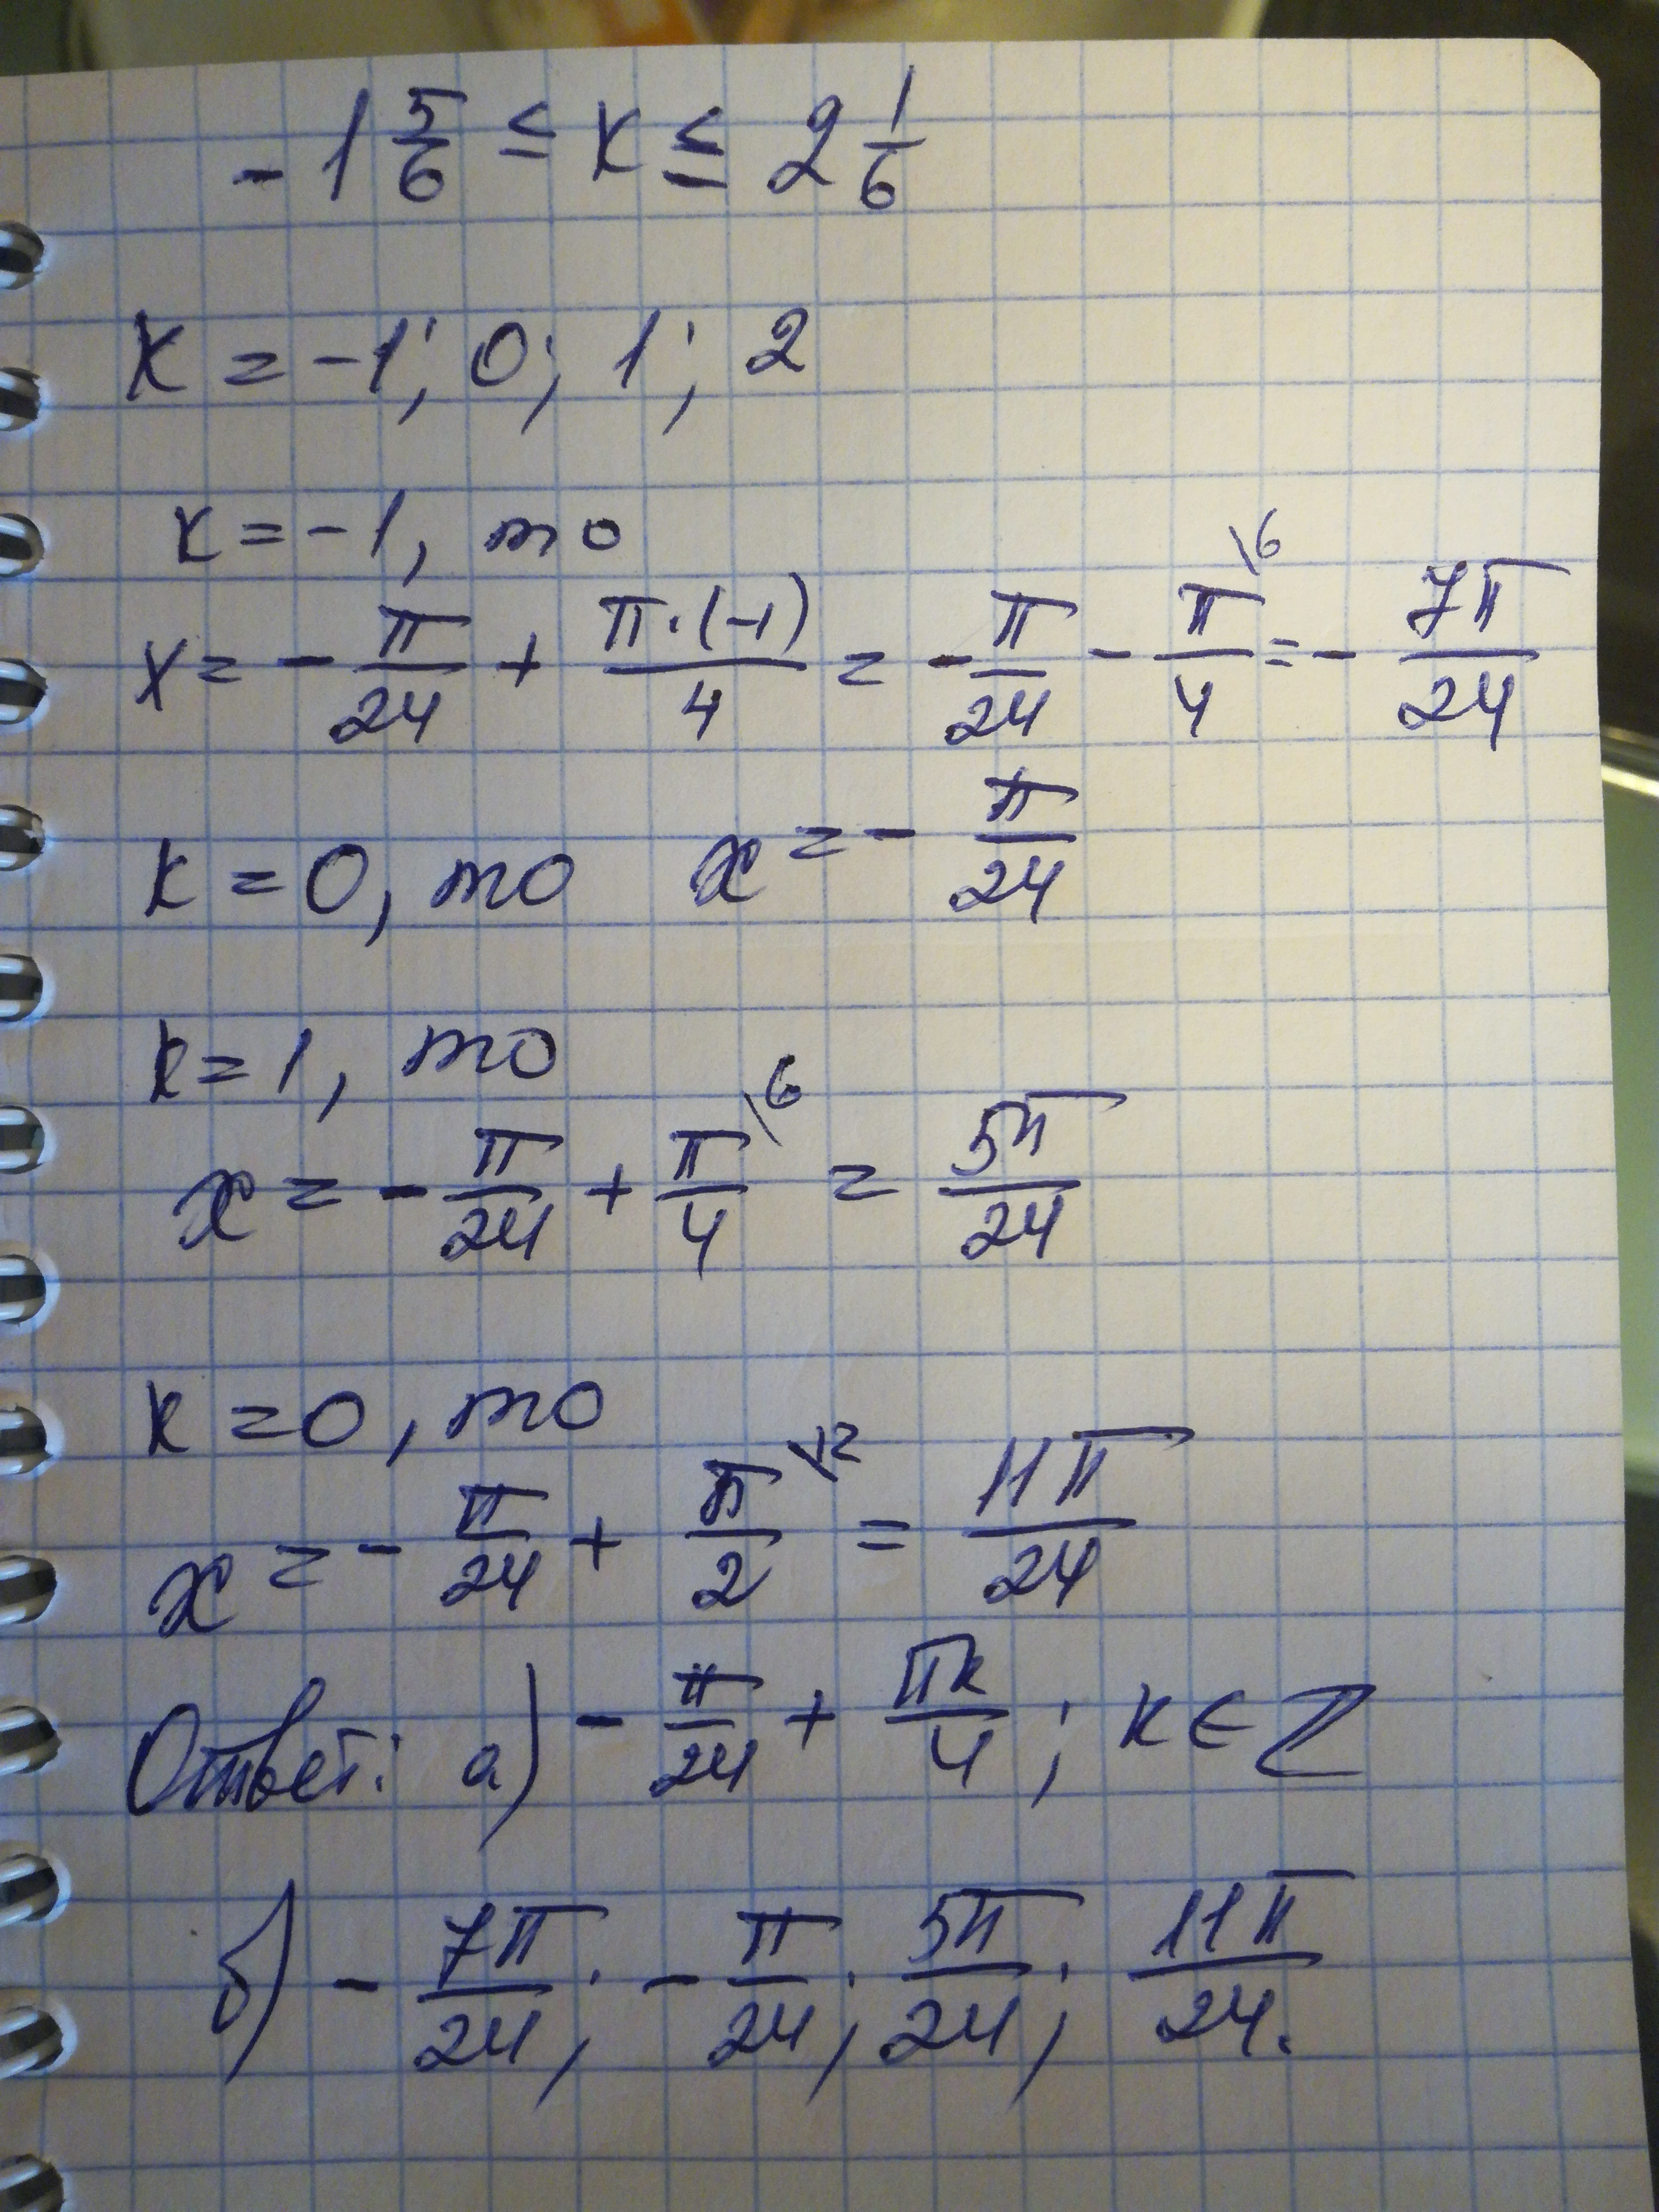 -1 5/6 ≤ k ≤ 2 1/6
k = -1; 0; 1; 2
k = -1, то
x = - π/24 + π·(-1)/4 = - π/24 - π/4 \6 = - 7π/24
k = 0, то x = - π/24
k = 1, то
x = - π/24 + π/4 \6 = 5π/24
k = 0, то
x = - π/24 + π/2 \12 = 11π/24
Ответ: а) - π/24 + πk/4; k ∈ Z
б) - 7π/24; - π/24; 5π/24; 11π/24.